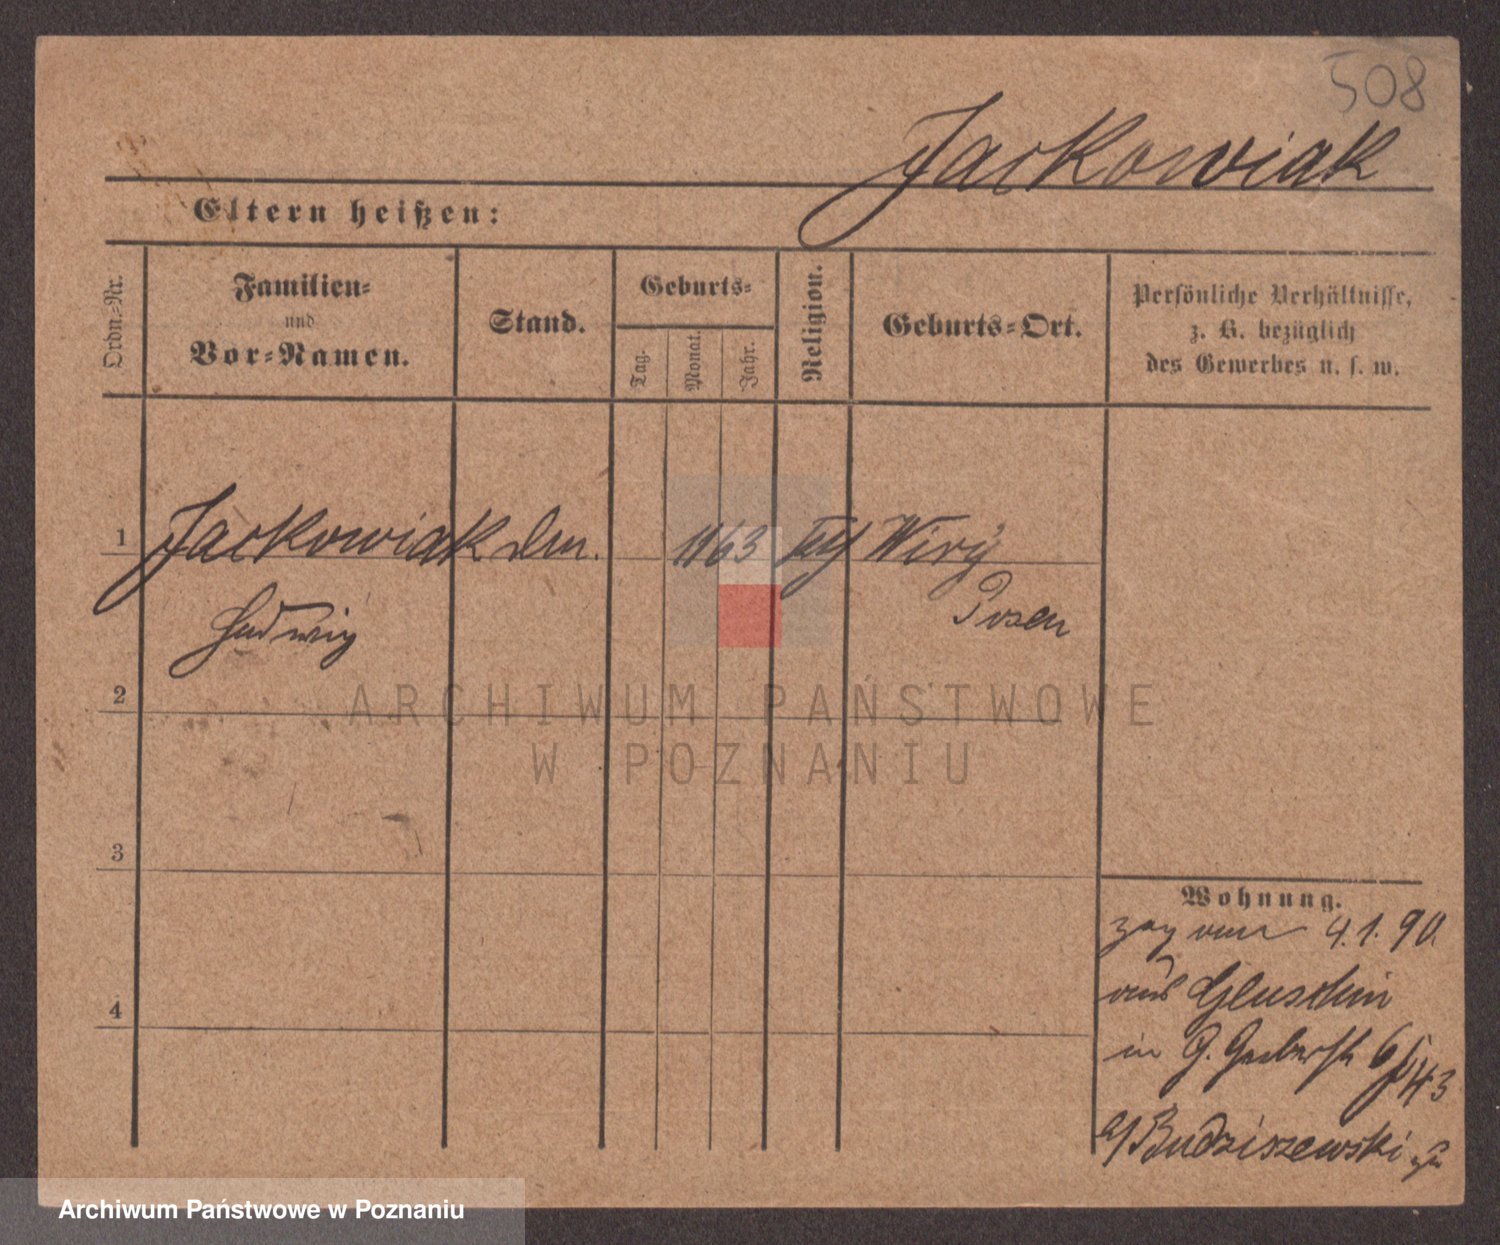 508
Jackowiak
Eltern heißen:
Ordn.-Nr.
Familien-
und
Vor-Namen.
Stand.
Geburts-
Tag.
Monat.
Jahr.
Religion.
Geburts-Ort.
Persönliche Verhältnisse,
z. B. bezüglich
des Gewerbes u. s. w.
1
Jackowiak 1863 Wiry
Hedwig
Posen
2
ARCHIWUM PAŃSTWOWE
W POZNANIU
3
Wohnung.
zog 4.1.90.
aus Gluschin
in G. Gerberstr
4
Budziszewski
Archiwum Państwowe w Poznaniu